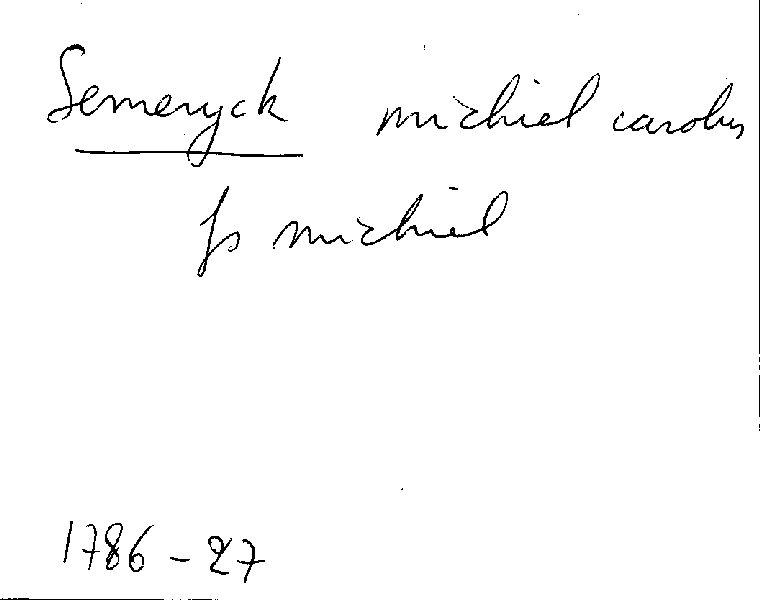 Semeryck michiel carolus
fs michiel
1786 - 27